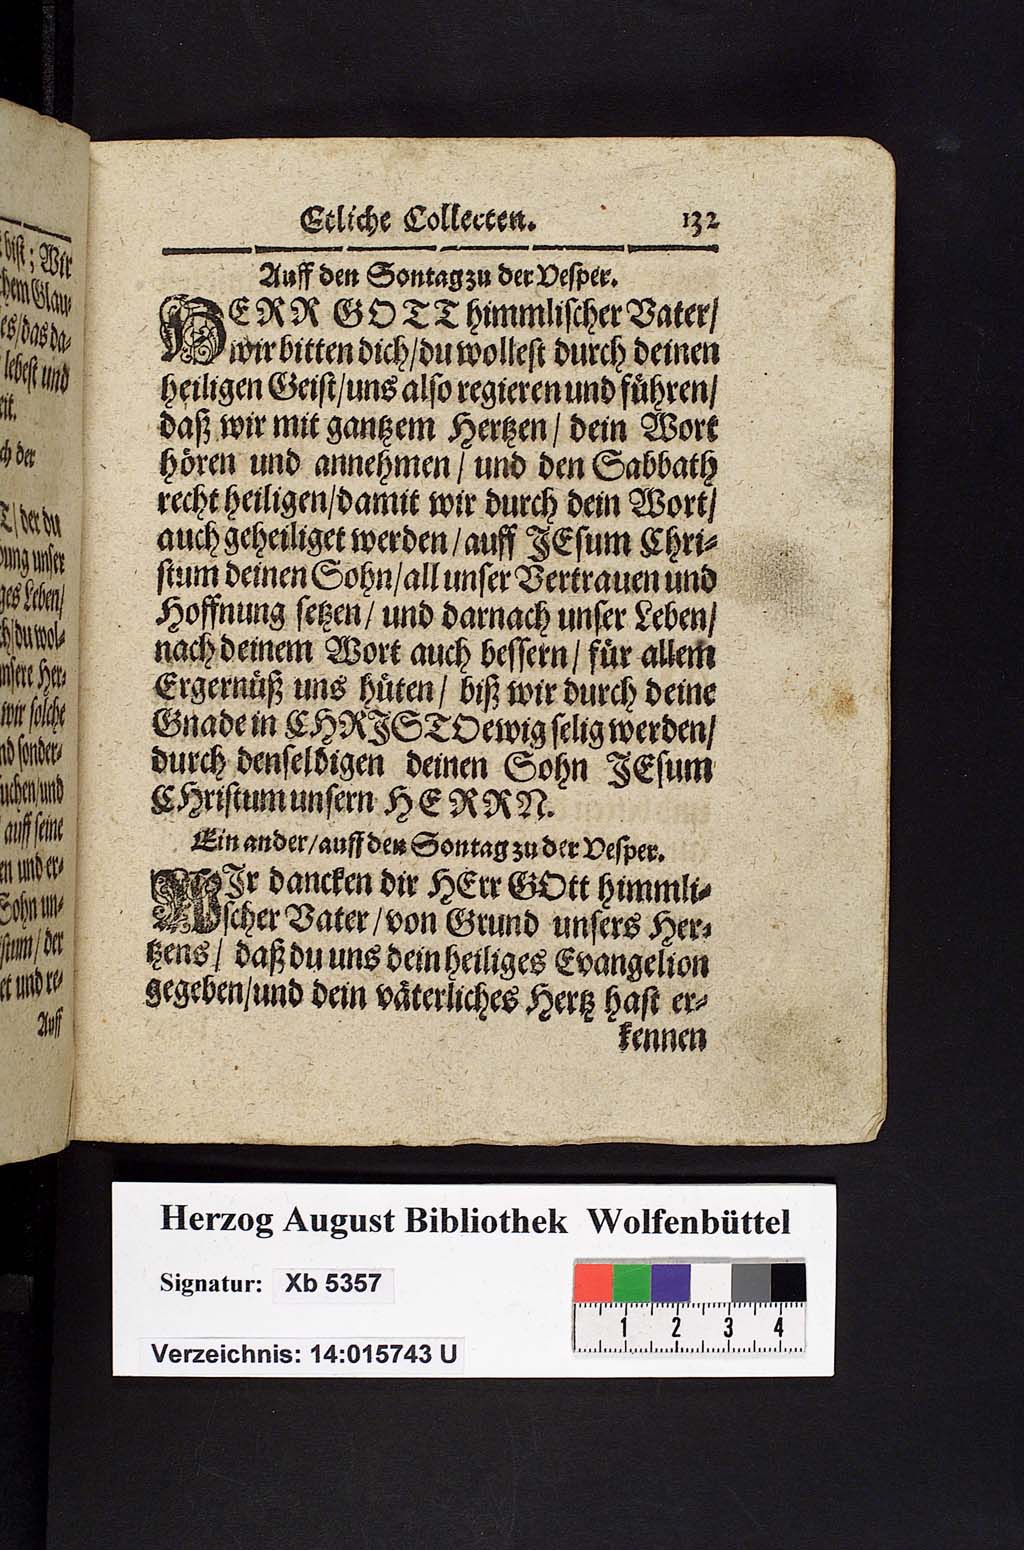 bist; Wir
chem Glau-
es/das da-
lebest und
eit.
ch der
T/ der du
bung unser
ges Leben/
ch/du wol-
unsere Her-
wir solche
nd sonder-
suchen/und
auff seine
en und er-
Sohn un-
stum/ der
et und re-
Auff
Etliche Collecten. 132
Auff den Sontag zu der Vesper.
HERR GOTT himmlischer Vater/
wir bitten dich/du wollest durch deinen
heiligen Geist/uns also regieren und führen/
daß wir mit gantzem Hertzen/ dein Wort
hören und annehmen/ und den Sabbath
recht heiligen/damit wir durch dein Wort/
auch geheiliget werden/auff JEsum Chri-
stum deinen Sohn/all unser Vertrauen und
Hoffnung setzen/ und darnach unser Leben/
nach deinem Wort auch bessern/ für allem
Ergernüß uns hüten/ biß wir durch deine
Gnade in CHRISTO ewig selig werden/
durch denselbigen deinen Sohn JEsum
CHristum unsern HERRN.
Ein ander/auff den Sontag zu der Vesper.
WIr dancken dir HErr GOtt himmli-
scher Vater/von Grund unsers Her-
tzens/ daß du uns dein heiliges Evangelion
gegeben/und dein väterliches Hertz hast er-
kennen
Herzog August Bibliothek Wolfenbüttel
Signatur: Xb 5357
Verzeichnis: 14:015743 U
1 2 3 4